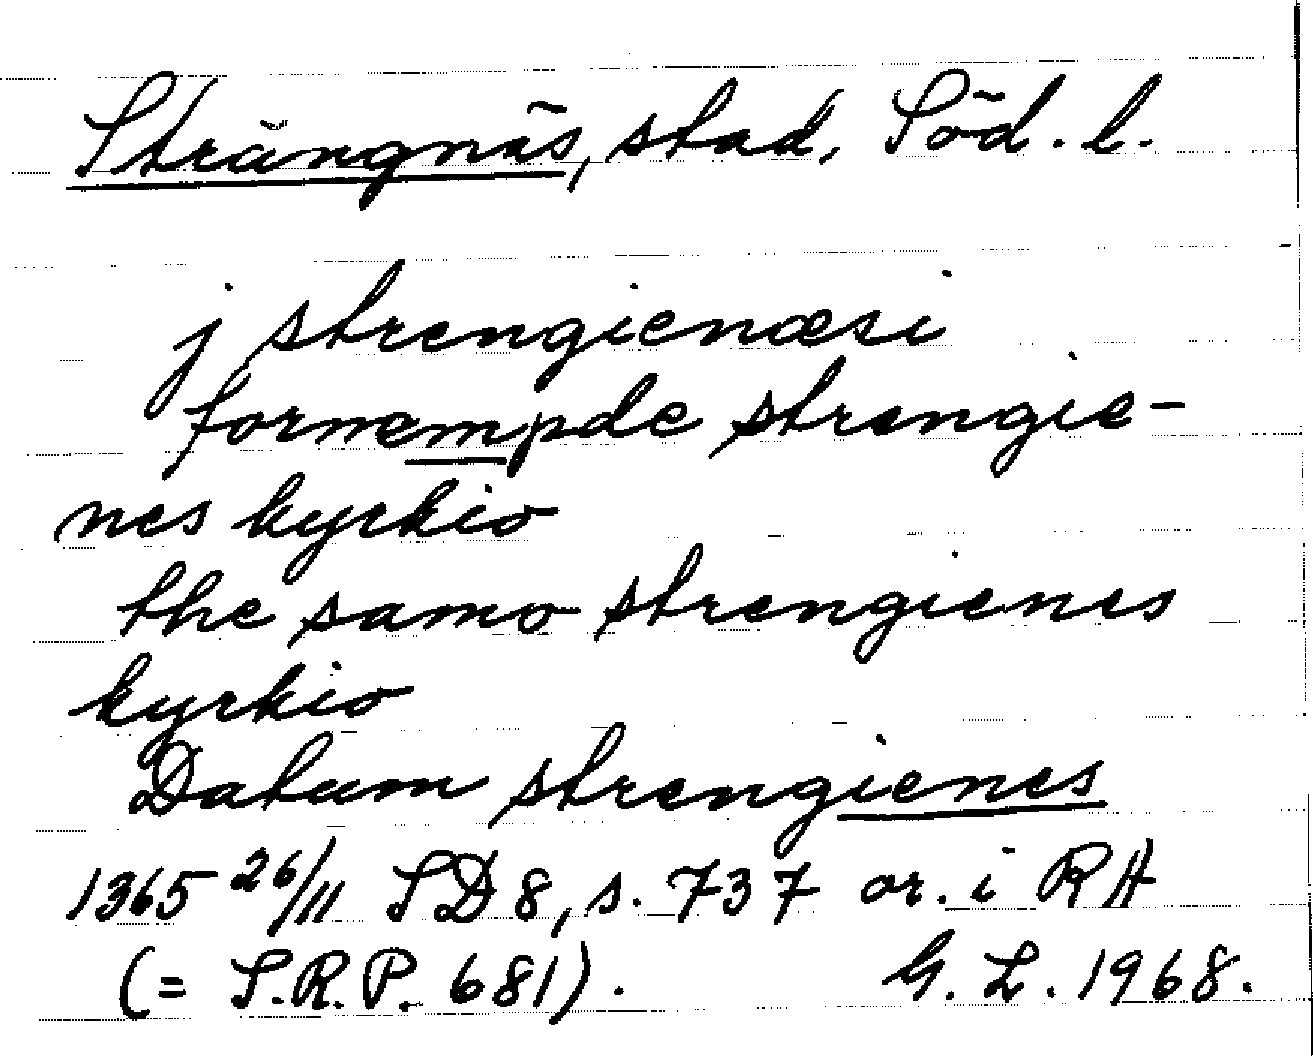 Strängnäs, stad, Söd. l.
j strengienæsi
fornempde strengie-
nes kyrkio
the samo strengienes
kyrkio
Datum strengienes
1365 26/11 SD 8, s. 737 or. i RA
(= S.R.P. 681). G. L. 1968.